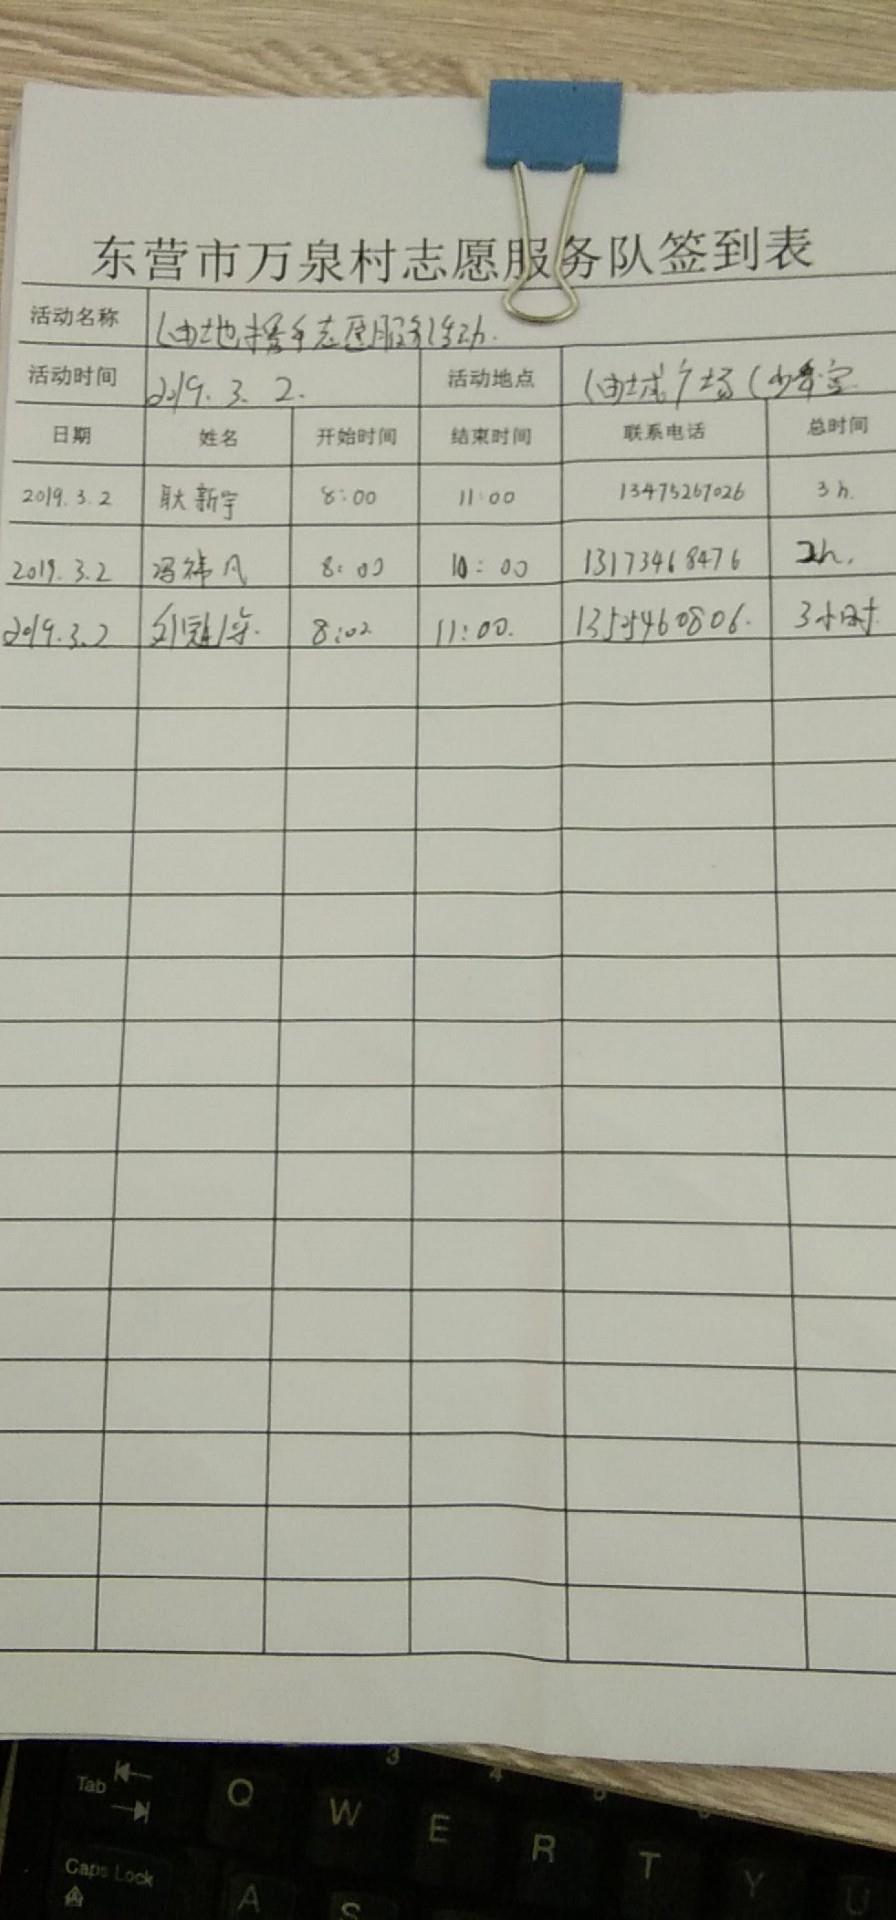 东营市万泉村志愿服务队签到表
活动名称 油地播手志愿服务活动.
活动时间 2019.3.2. 活动地点 油城广场(少年宫
日期 姓名 开始时间 结束时间 联系电话 总时间
2019.3.2 耿新宇 8:00 11:00 13475267026 3h.
2019.3.2 冯祎凡 8:00 10:00 13173468476 2h.
2019.3.2 8:02 11:00. 3小时.
3
4
Tab Q W E R T Y U
Caps Lock A S